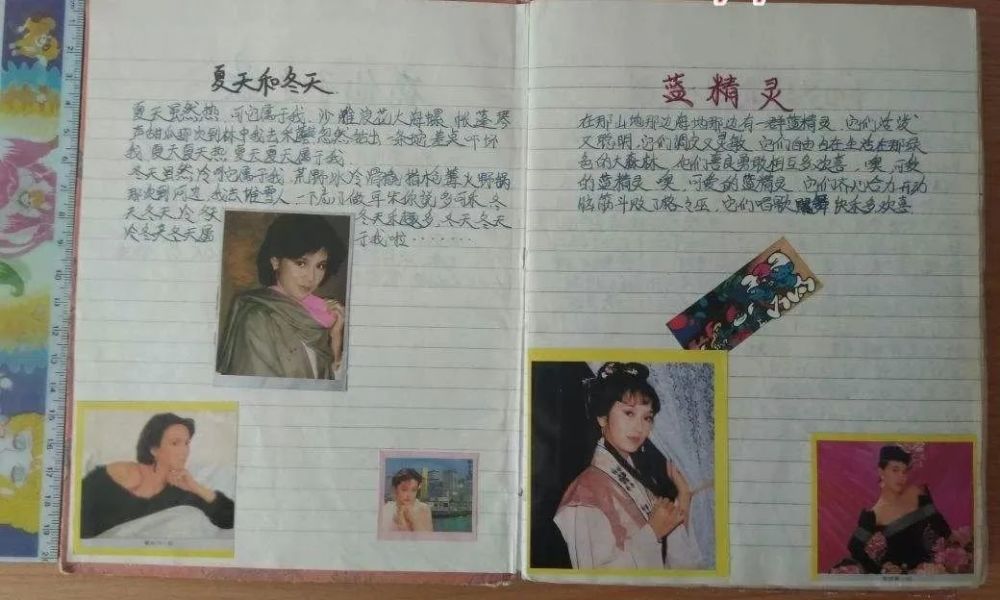 夏天和冬天
夏天虽然热 可它属于我 沙滩浪花大海螺 帐篷琴
声甜瓜 那次到林中我去采蘑 忽然钻出一条蛇差点吓坏
我 夏天夏天热 夏天夏天属于我
冬天虽然冷可它属于我 荒野冰冷滑
那次到河边 我去堆雪人一下 冬
天冬天冷 冬天乐趣多 冬天冬天
冷冬天冬天属 于我啦.......
蓝精灵
在那山的那边海的那边有一群蓝精灵 它们活泼
又聪明 它们调皮又灵敏 它们自由自在生活在那绿
色的大森林 他们善良勇敢相互多欢喜，噢 可爱
的蓝精灵 噢，可爱的蓝精灵 它们齐心合力开动
脑筋斗败了格格巫，它们唱歌跳舞快乐多欢喜